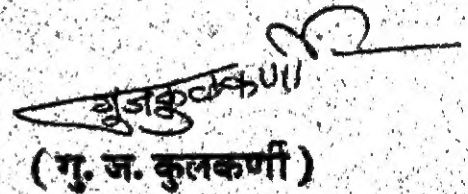 गुजकुलकर्णी
( गु. ज. कुलकर्णी )